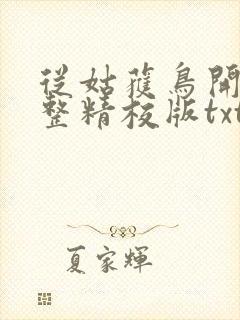 從姑獲鳥開
整精校版txt
夏家輝